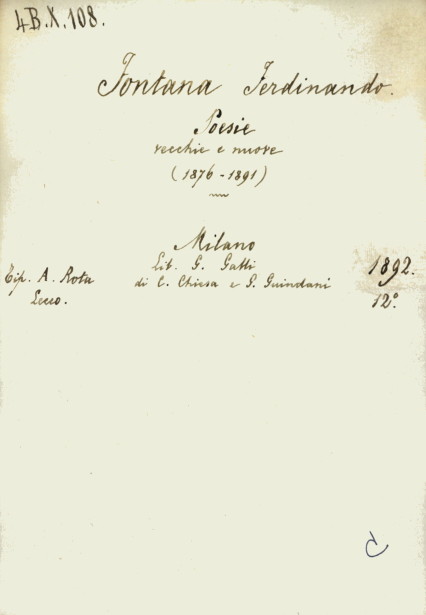 4B.X.108.
Fontana Ferdinando.
Poesie
vecchie e nuove
(1876-1891)
Milano
Lit. G. Galli 1892.
Tip. A. Rota di C. Chiesa e G. Guindani
Lecco. 12°